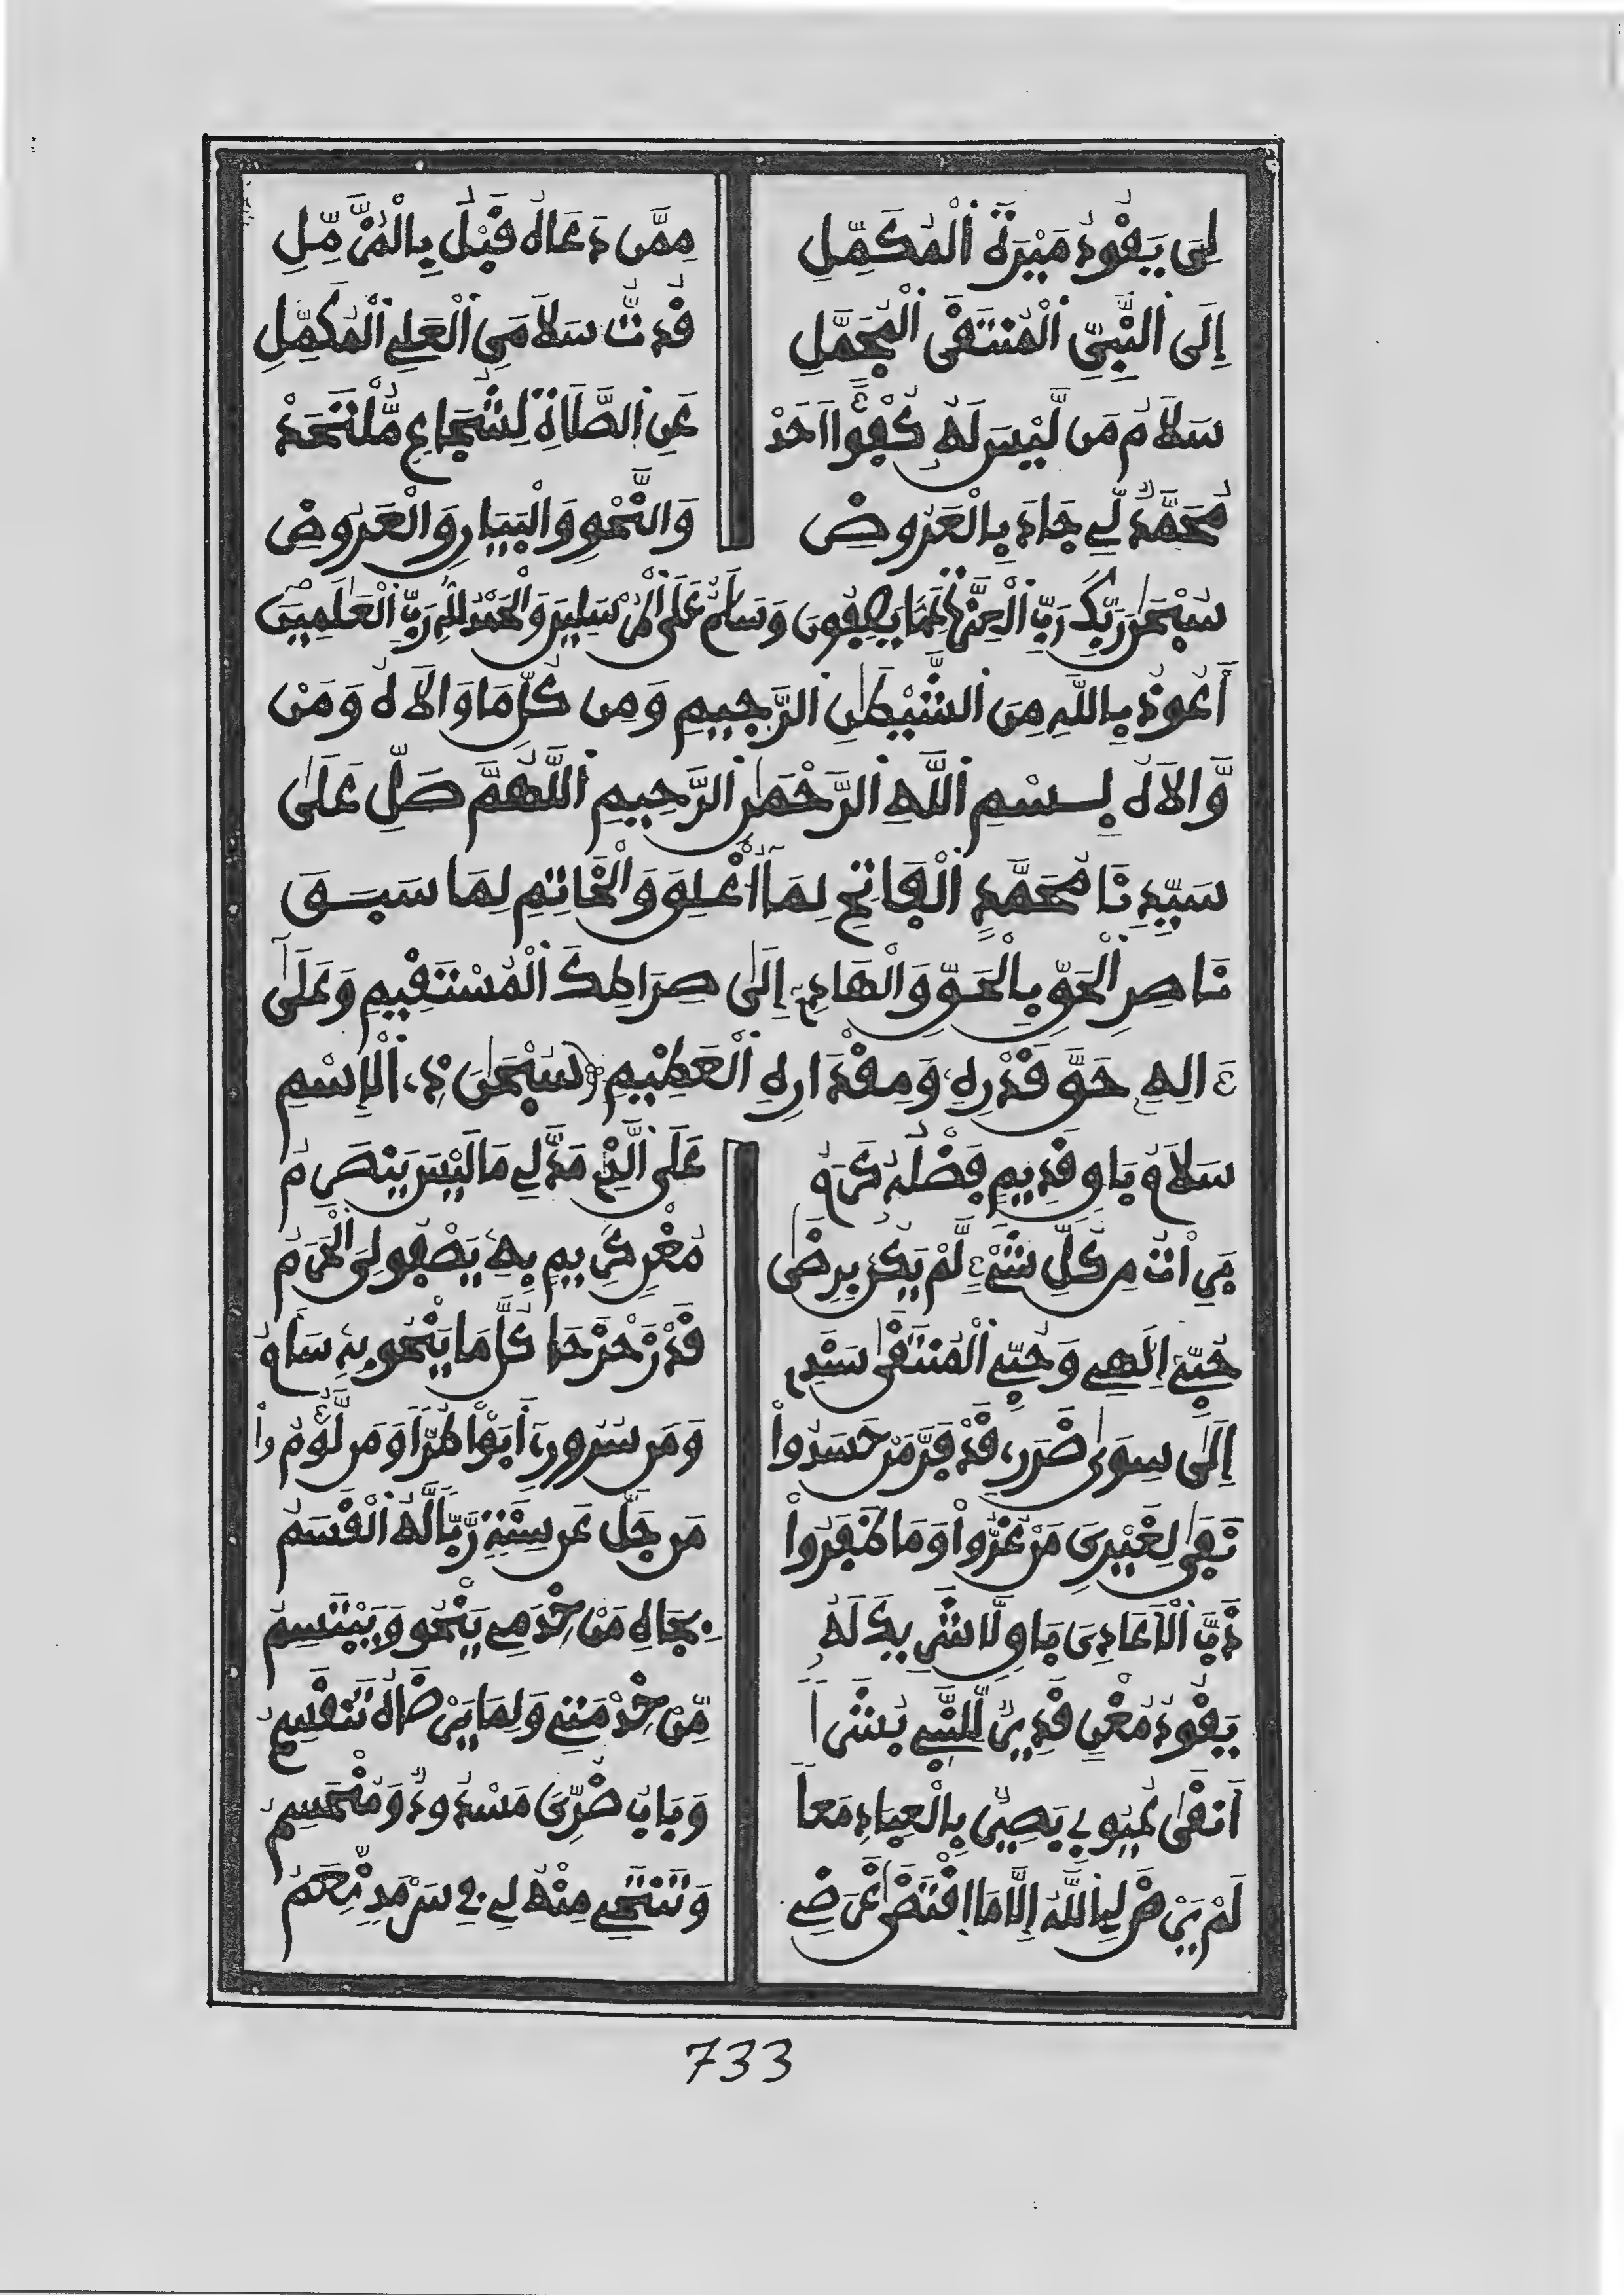 لِىَ يَقُودُ مَيْرَهُ الْمُكَمِّلِ مِمَّن دَعَاهُ قَبْلُ بِالْمُزَّمِّلِ
إِلَى النَّبِىِّ الْمُنتَقَى الْمُجَمَّلِ قُدتُّ سَلَامَىِ الْعَلِى الْمُكَمِّلِ
سَلَامُ مَن لَّيْسَ لَهُ كُفُؤًا اَحَدْ عَنِ الصَّلَاةِ لِشُجَاعٍ مُّلْتَحَدْ
مُحَمَّدٌ لِّى جَادَ بِالْعَرُوضِ وَالنَّحْوِ وَالْبَيَانِ وَالْعَرُوضِ
سُبْحَٰنَ رَبِّكَ رَبِّ الْعِزَّةِ عَمَّا يَصِفُونَ وَسَلَٰمٌ عَلَى الْمُرْسَلِينَ وَالْحَمْدُ لِلهِ رَبِّ الْعَٰلَمِينَ
أَعُوذُ بِاللَّهِ مِنَ الشَّيْطَٰنِ الرَّجِيمِ وَمِن كُلِّ مَا وَالَاهُ وَمَن
وَّالَاهُ بِسْمِ اللَّهِ الرَّحْمَٰنِ الرَّحِيمِ اللَّهُمَّ صَلِّ عَلَىٰ
سَيِّدِنَا مُحَمَّدٍ الْفَاتِحِ لِمَا أُغْلِقَ وَالْخَاتِمِ لِمَا سَبَقَ
نَاصِرِ الْحَقِّ بِالْحَقِّ وَالْهَادِى إِلَى صِرَاطِكَ الْمُسْتَقِيمِ وَعَلَىٰ
ءَالِهِ حَقَّ قَدْرِهِ وَمِقْدَارِهِ الْعَظِيمِ سُبْحَٰنَ ذِى الْاِسْمِ
سَلَامُ بَاقٍ قَدِيمٍ فَضْلُهُ كَرَمُ عَلَى الَّذِى مَدَّ لِى مَا لَيْسَ يَنصَرِمُ
مَىِ انْتَ مِن كُلِّ شَىْءٍ لَّمْ يَكُن بِرِضًى مُغْنٍ كَرِيمٍ بِهِ يَصْفُو لِىَ الْحَرَمُ
حُبِّى إِلَٰهِى وَحُبِّى الْمُنتَقَىٰ سَنَدِى قَدْ زَحْزَحَا كُلَّ مَا يَنْحُو بِهِ سَأَمُ
إِلَىٰ سِوَىٰ ضَرَرِى قَدْ فَرَّ مَنْ حَسَدُواْ وَمَن سُرُورِى أَبَوْا طُرًّا وَمَن لَّؤُمُواْ
نَفَىٰ لِغَيْرِىَ مَنْ غَرُّواْ وَمَا ظَفِرُواْ مَن جَلَّ عَن سِنَةٍ رَّبًّا لَّهُ الْقَسَمُ
ذَبَّ الْأَعَادِىَ بَاقٍ لَّا شَرِيكَ لَهُ بِجَاهِ مَنْ خِدَمِى يَنْحُو وَيَبْتَسِمُ
يَقُودُ مُغْنٍ قَدِيرٌ لِلنَّبِى بُشَرًا مِّنْ خِدْمَتِى وَلِمَا يَرْضَاهُ تَنقَسِمُ
أَنقَىٰ عُيُوبِى بَصِيرٌ بِالْعِبَادِ مَعاً وَبَابُ ضُرِّىَ مَسْدُودٌ وَمُنْحَسِمُ
لَمْ يَرْضَ لِى اللَّهُ إِلَّا مَا اقْتَضَىٰ غَرَضِى وَتَنْتَحِى مِنْهُ لِى فِى سَرْمَدٍ نِّعَمُ
733